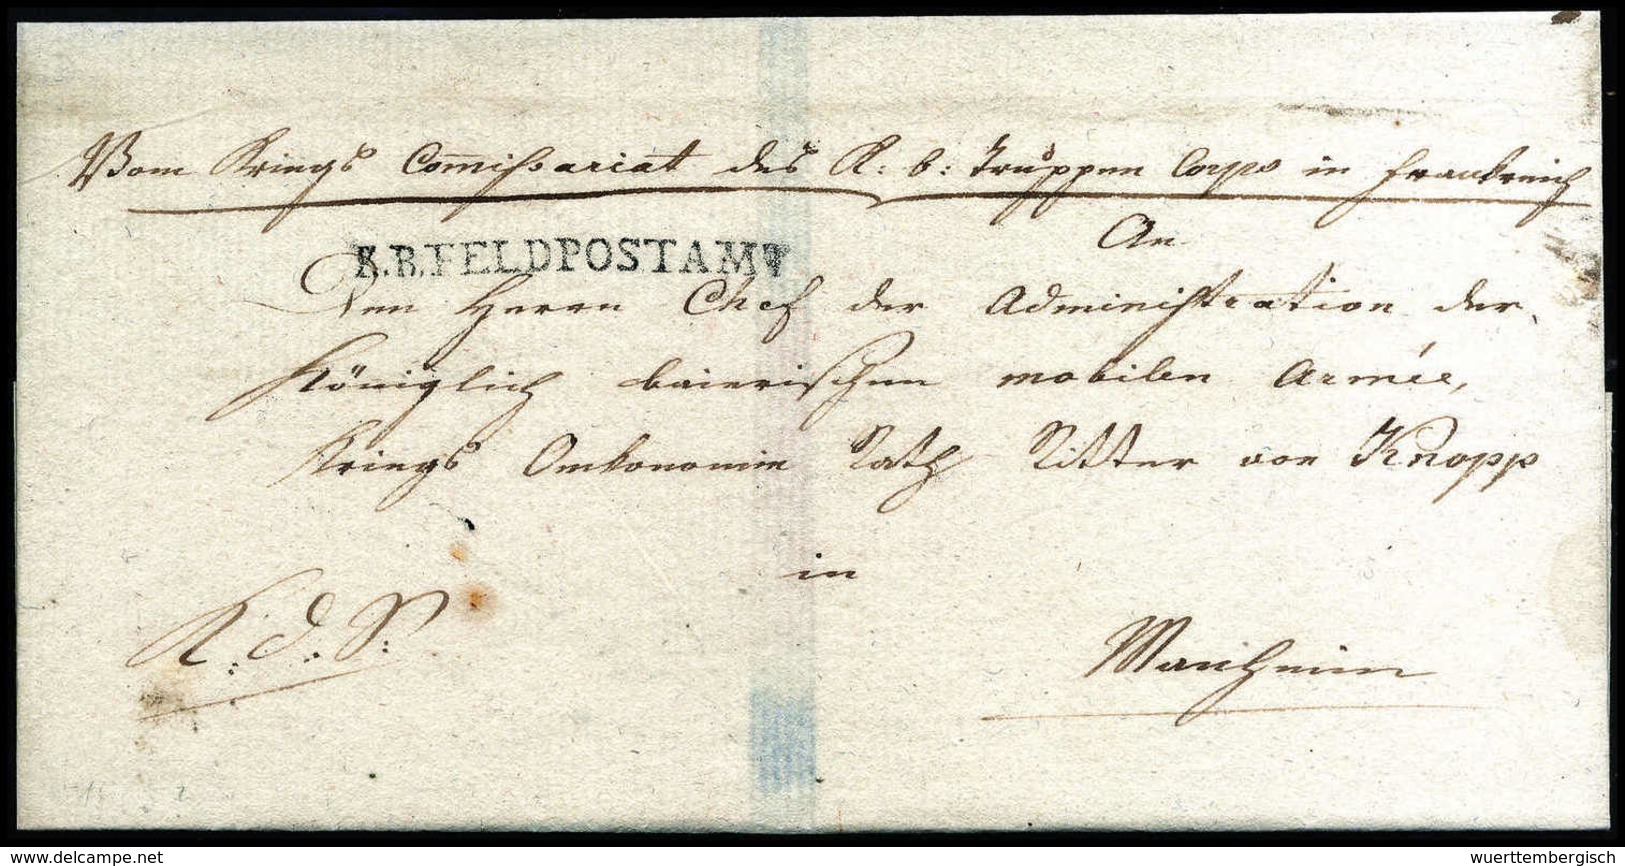 Vom Kriegs Commissariat des K: b: Truppen Corps in Frankreich
K.B.FELDPOSTAMT
An
Den Herrn Chef der Administration der
Königlich baierischen mobilen Armée,
Kriegs Oeekonomie Rath Ritter von Knopp
in
K. d. S.
Manheim
delcampe.net
wuerttembergisch